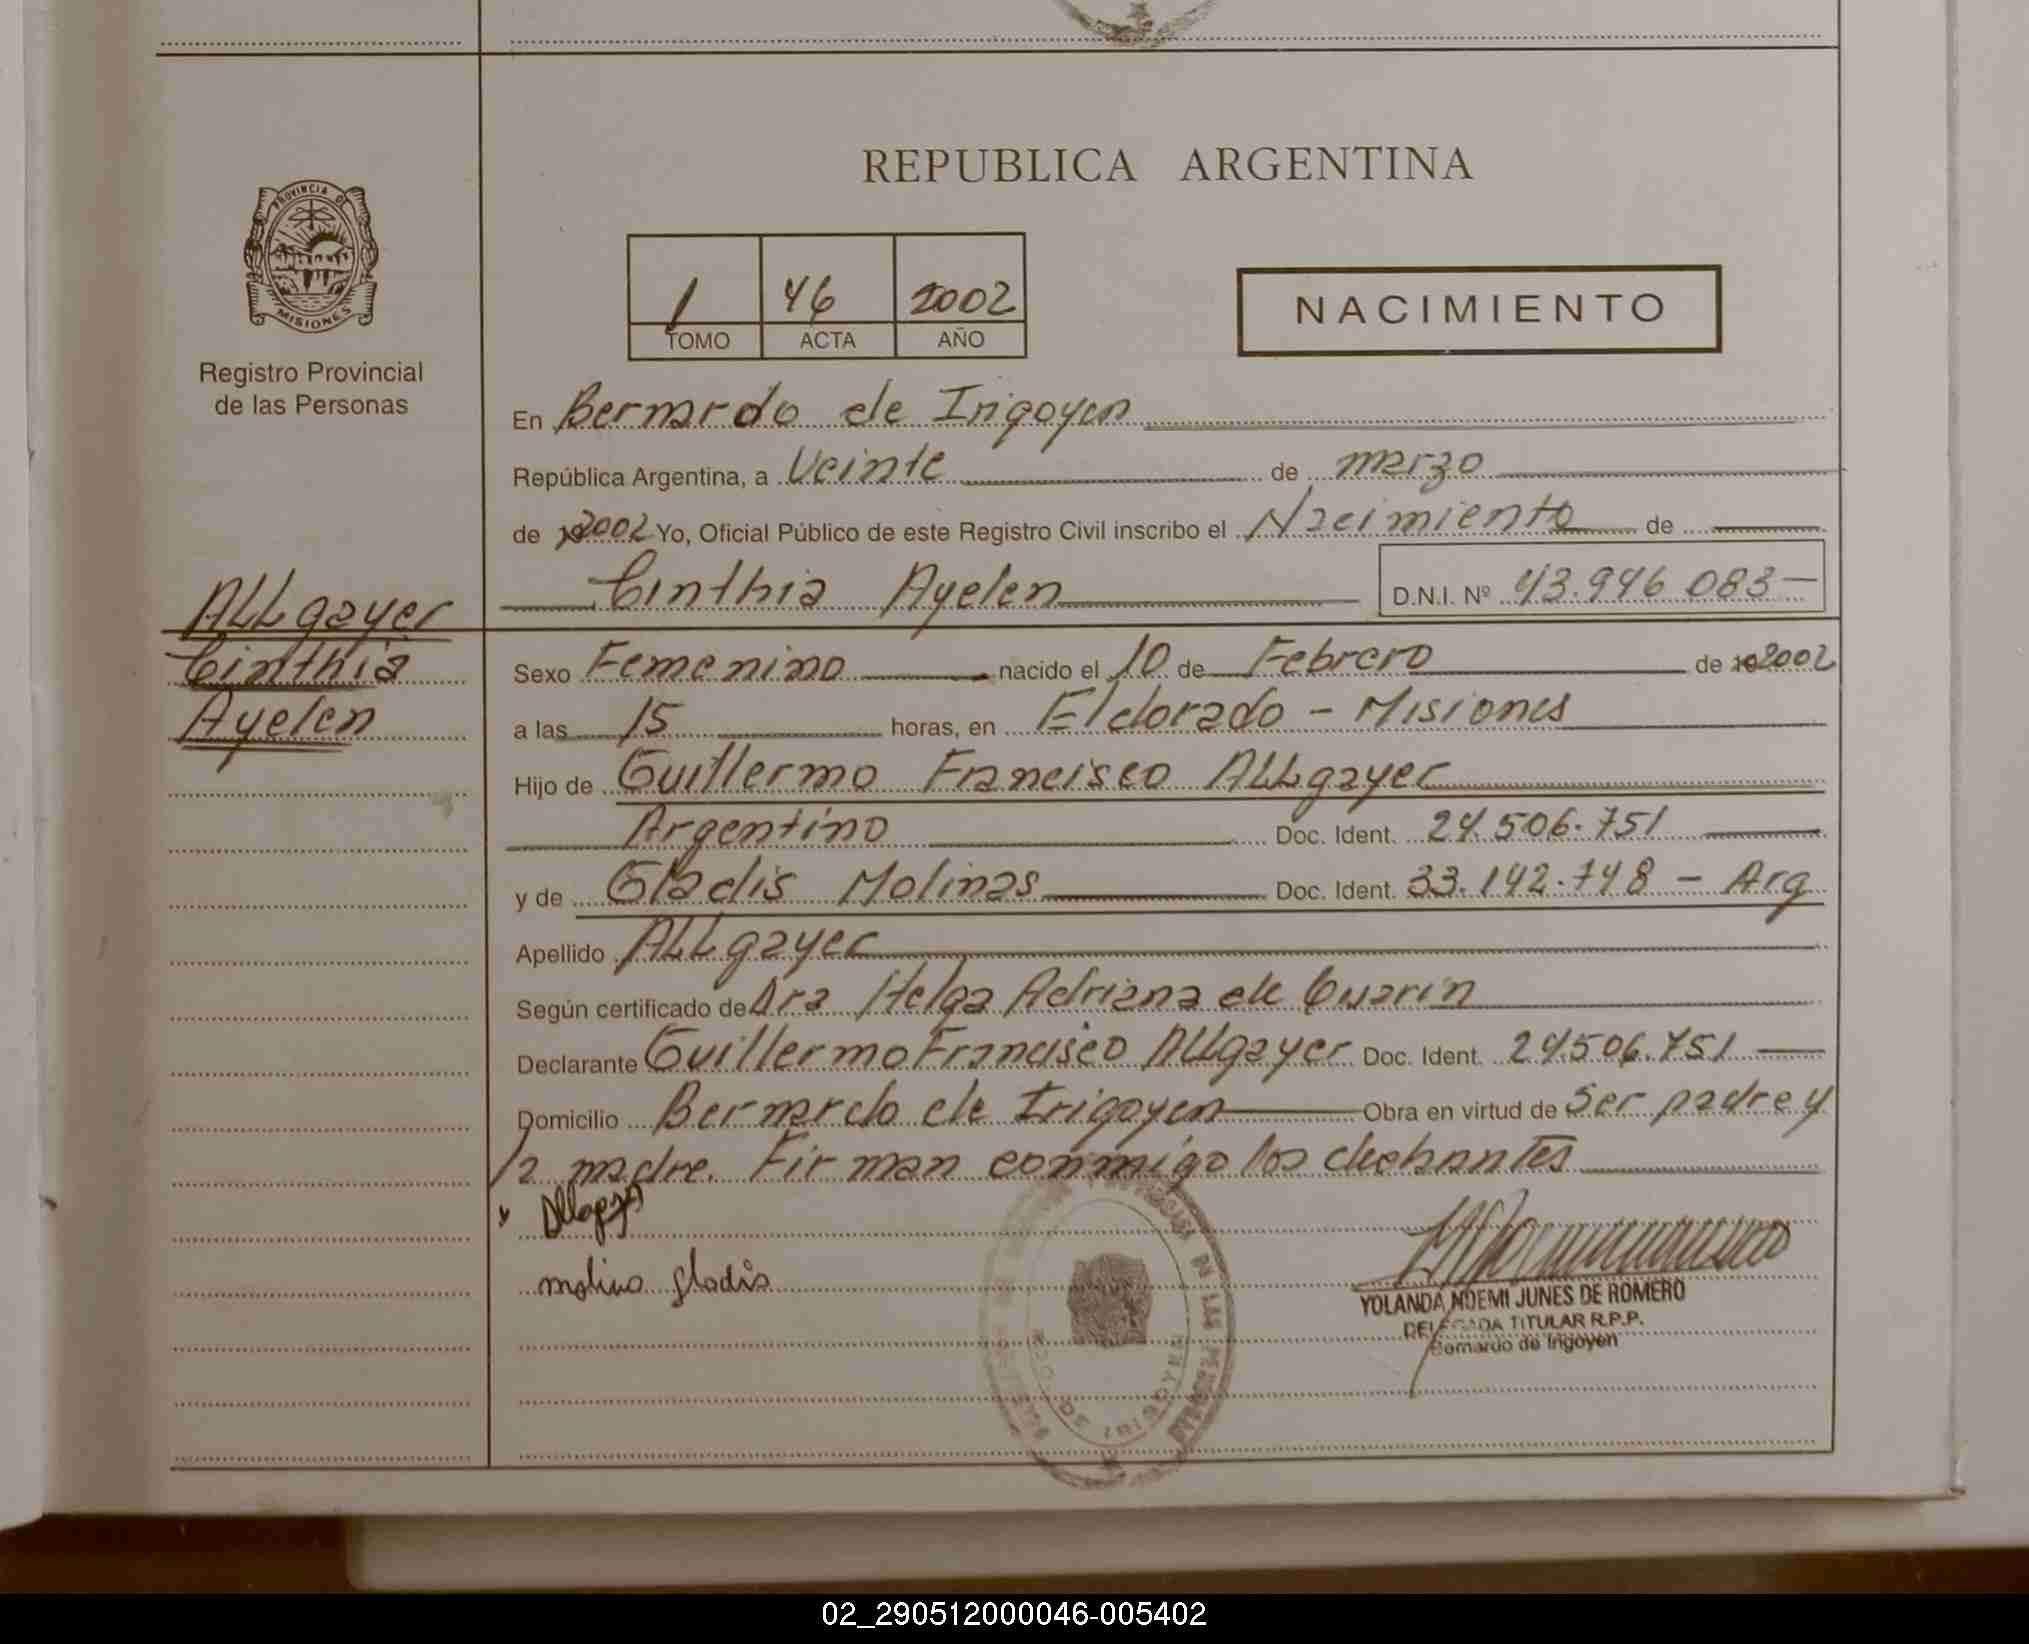 REPUBLICA ARGENTINA
PROVINCIA DE
MISIONES
Registro Provincial
de las Personas
1 46 2002
TOMO ACTA AÑO
NACIMIENTO
En Bernardo de Irigoyen
República Argentina, a Veinte de marzo
de 2002 Yo, Oficial Público de este Registro Civil inscribo el Nacimiento de
Cinthia Ayelen D.N.I. Nº 43.946.083
ALLgayer
Cinthia
Ayelen
Sexo Femenino nacido el 10 de Febrero de 2002
a las 15 horas, en Eldorado - Misiones
Hijo de Guillermo Francisco ALLgayer
Argentino Doc. Ident. 24.506.751
y de Gladis Molinas Doc. Ident. 33.142.748 - Arg
Apellido ALLgayer
Según certificado de Dra Helga Adriana de
Declarante Guillermo Francisco ALLgayer Doc. Ident. 24.506.751
Domicilio Bernardo de Irigoyen Obra en virtud de Ser padre y
la madre. Firman conmigo los
molina gladis
YOLANDA NOEMI JUNES DE ROMERO
DELEGADA TITULAR R.P.P.
Bernardo de Irigoyen
02_290512000046-005402